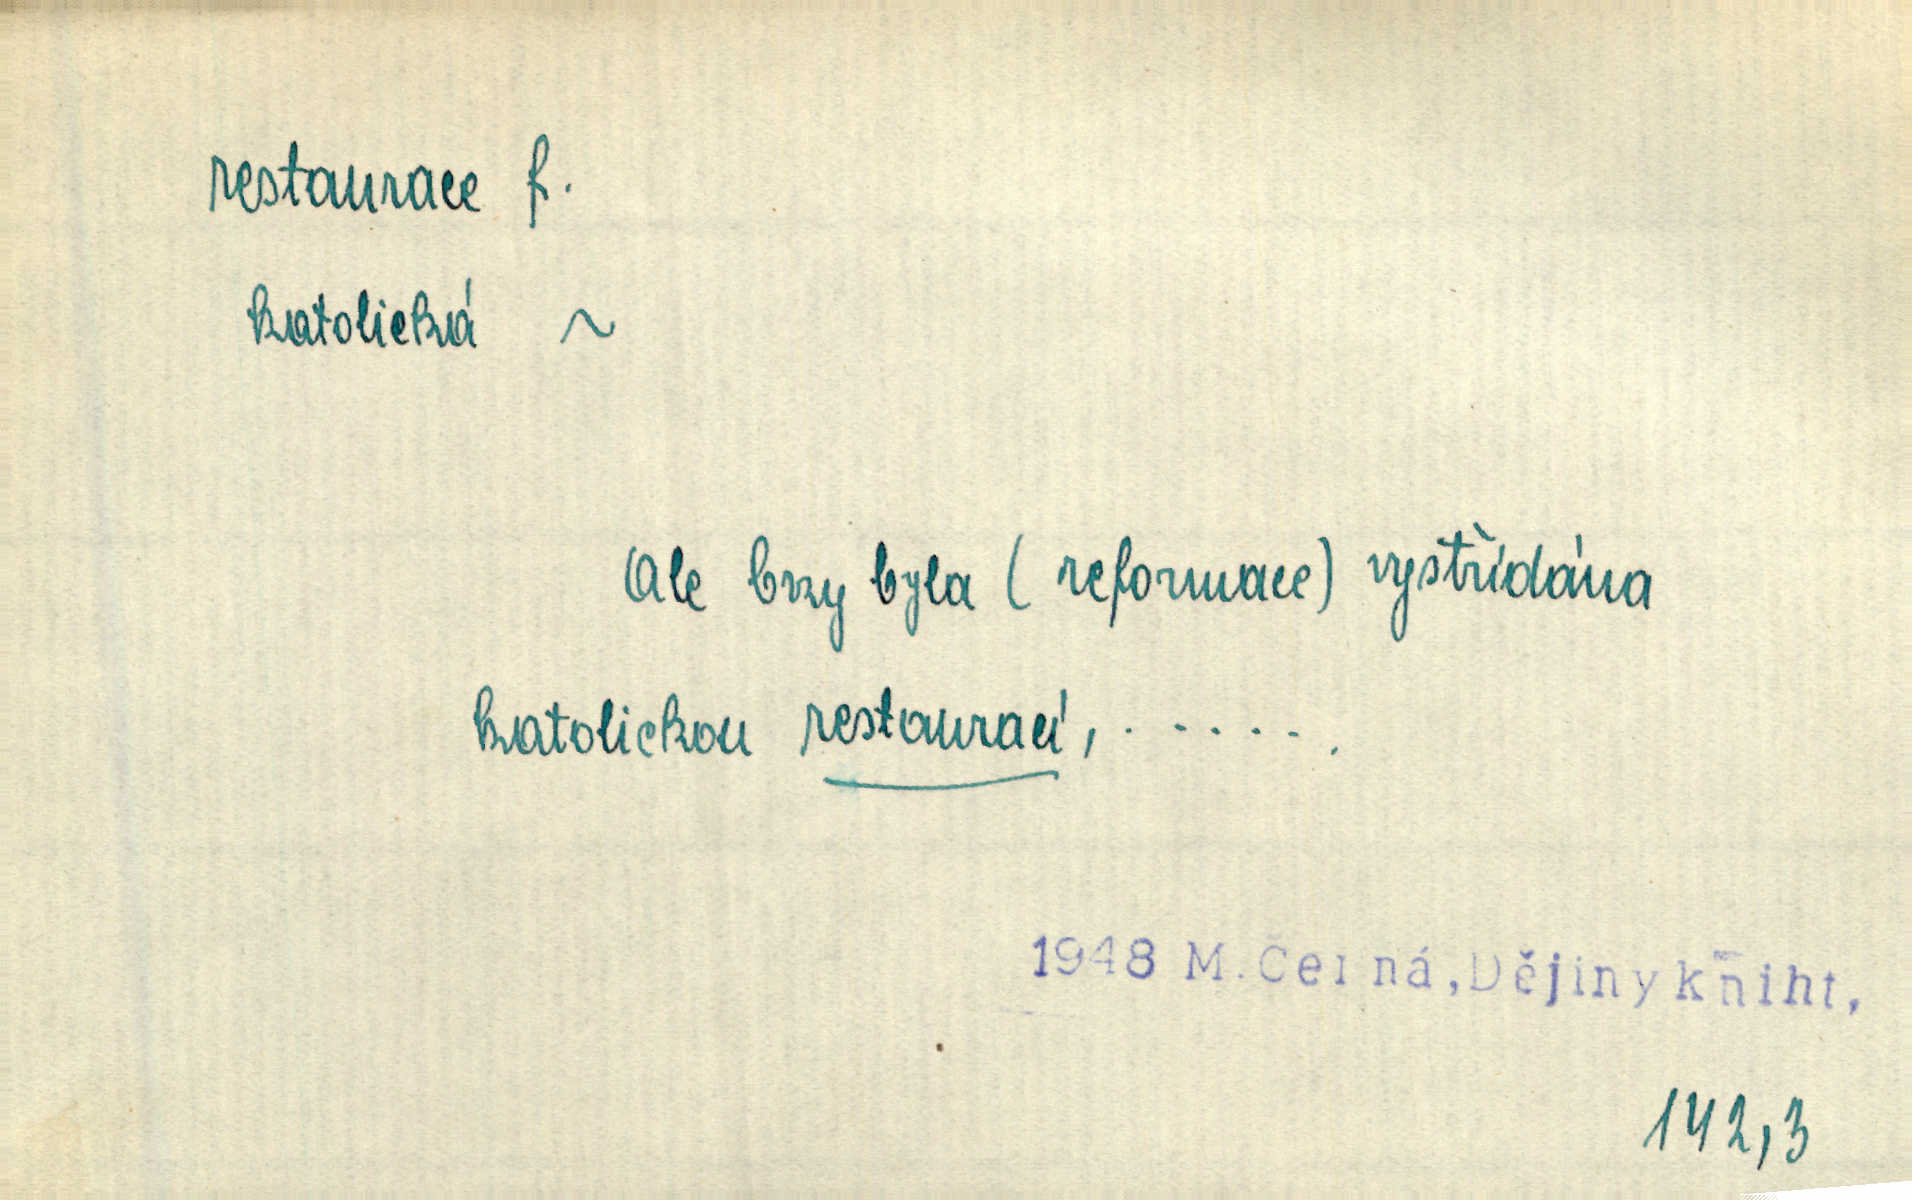 restaurace f.
katolická ~
Ale brzy byla (reformace) vystřídána
katolickou restaurací, . . . . . .
1948 M. Černá, Dějiny kniht,
142,3